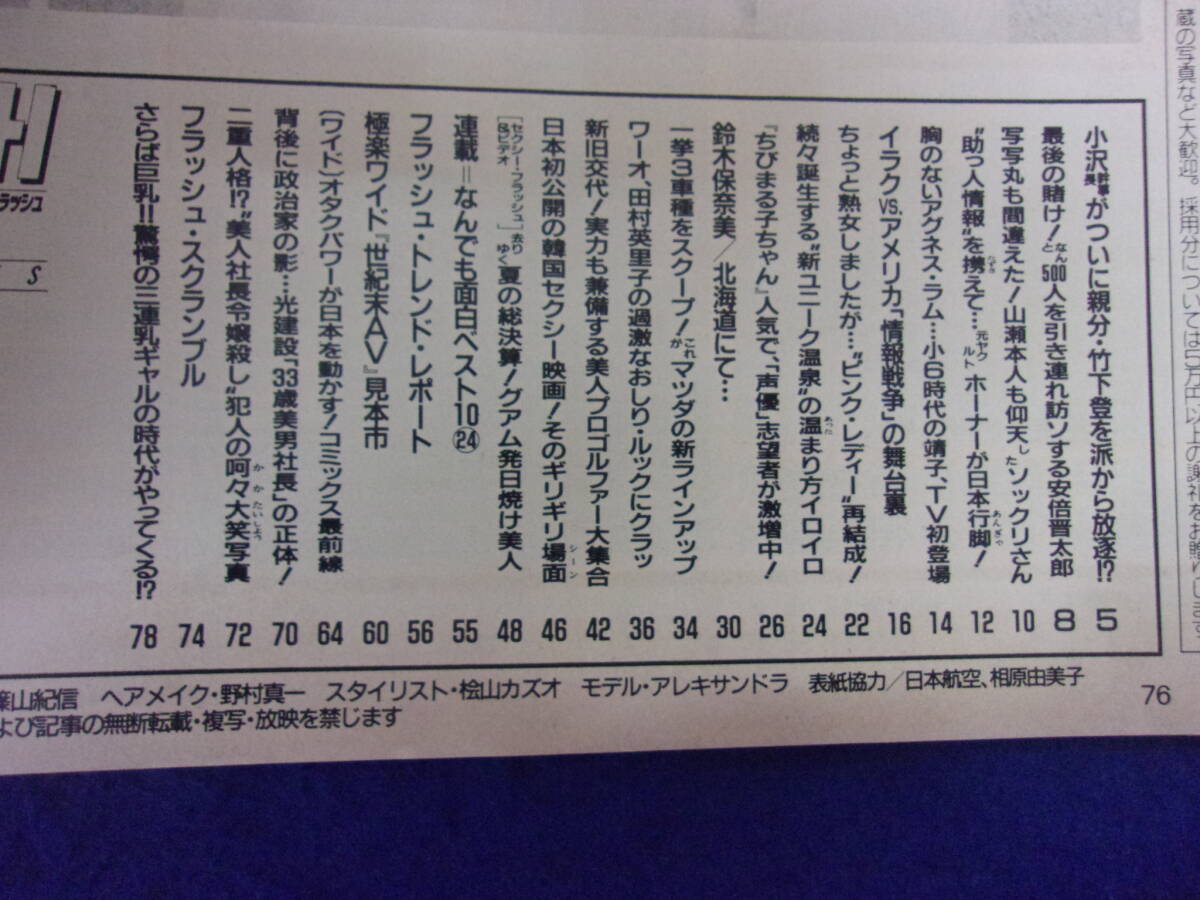 蔵の写真など大歓迎。採用分については
小沢幹事長がついに親分・竹下登を派から放逐!? 5
最後の賭け!なんと500人を引き連れ訪ソする安倍晋太郎 8
写写丸も間違えた!山瀬本人も仰天したソックリさん 10
“助っ人情報”を携えて…元ヤクルトホーナーが日本行脚! 12
胸のないアグネス・ラム…小6時代の靖子、TV初登場 14
イラクvs.アメリカ「情報戦争」の舞台裏 16
ちょっと熟女しましたが…“ピンク・レディー”再結成! 22
続々誕生する“新ユニーク温泉”の温まり方イロイロ 24
『ちびまる子ちゃん』人気で、「声優」志望者が激増中! 26
鈴木保奈美/北海道にて… 30
一挙3車種をスクープ!これがマツダの新ラインアップ 34
ワーオ、田村英里子の過激なおしり・ルックにクラッ 36
新旧交代!実力も兼備する美人プロゴルファー大集合 42
日本初公開の韓国セクシー映画!そのギリギリ場面 46
[セクシー・フラッシュ&ビデオ]去りゆく夏の総決算!グアム発日焼け美人 48
連載=なんでも面白ベスト10㉔ 55
フラッシュ・トレンド・レポート 56
極楽ワイド『世紀末AV』見本市 60
(ワイド)オタクパワーが日本を動かす!コミックス最前線 64
背後に政治家の影…光建設「33歳美男社長」の正体! 70
二重人格!?“美人社長令嬢殺し”犯人の呵々大笑写真 72
フラッシュ・スクランブル 74
さらば巨乳!!驚愕の三連乳ギャルの時代がやってくる!? 78
ラッシュ
S
篠山紀信 ヘアメイク・野村真一 スタイリスト・桧山カズオ モデル・アレキサンドラ 表紙協力/日本航空、相原由美子
よび記事の無断転載・複写・放映を禁じます
76